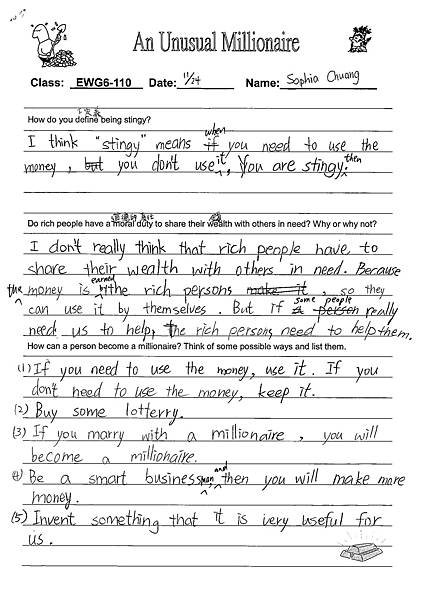 An Unusual Millionaire
Class: EWG6-110 Date: 11/24 Name: Sophia Chuang
下定義
How do you define being stingy?
when
I think "stingy" means if you need to use the
money, but you don't use it, then you are stingy.
Do rich people have a moral duty to share their wealth with others in need? Why or why not?
I don't really think that rich people have to
share their wealth with others in need. Because
the money is earned by the rich persons make it, so they
can use it by themselves. But if a person some people really
need us to help, the rich persons need to help them.
How can a person become a millionaire? Think of some possible ways and list them.
(1) If you need to use the money, use it. If you
don't need to use the money, keep it.
(2) Buy some lotterry.
(3) If you marry with a millionaire, you will
become a millionaire.
(4) Be a smart businessman, and then you will make more
money.
(5) Invent something that it is very useful for
us.